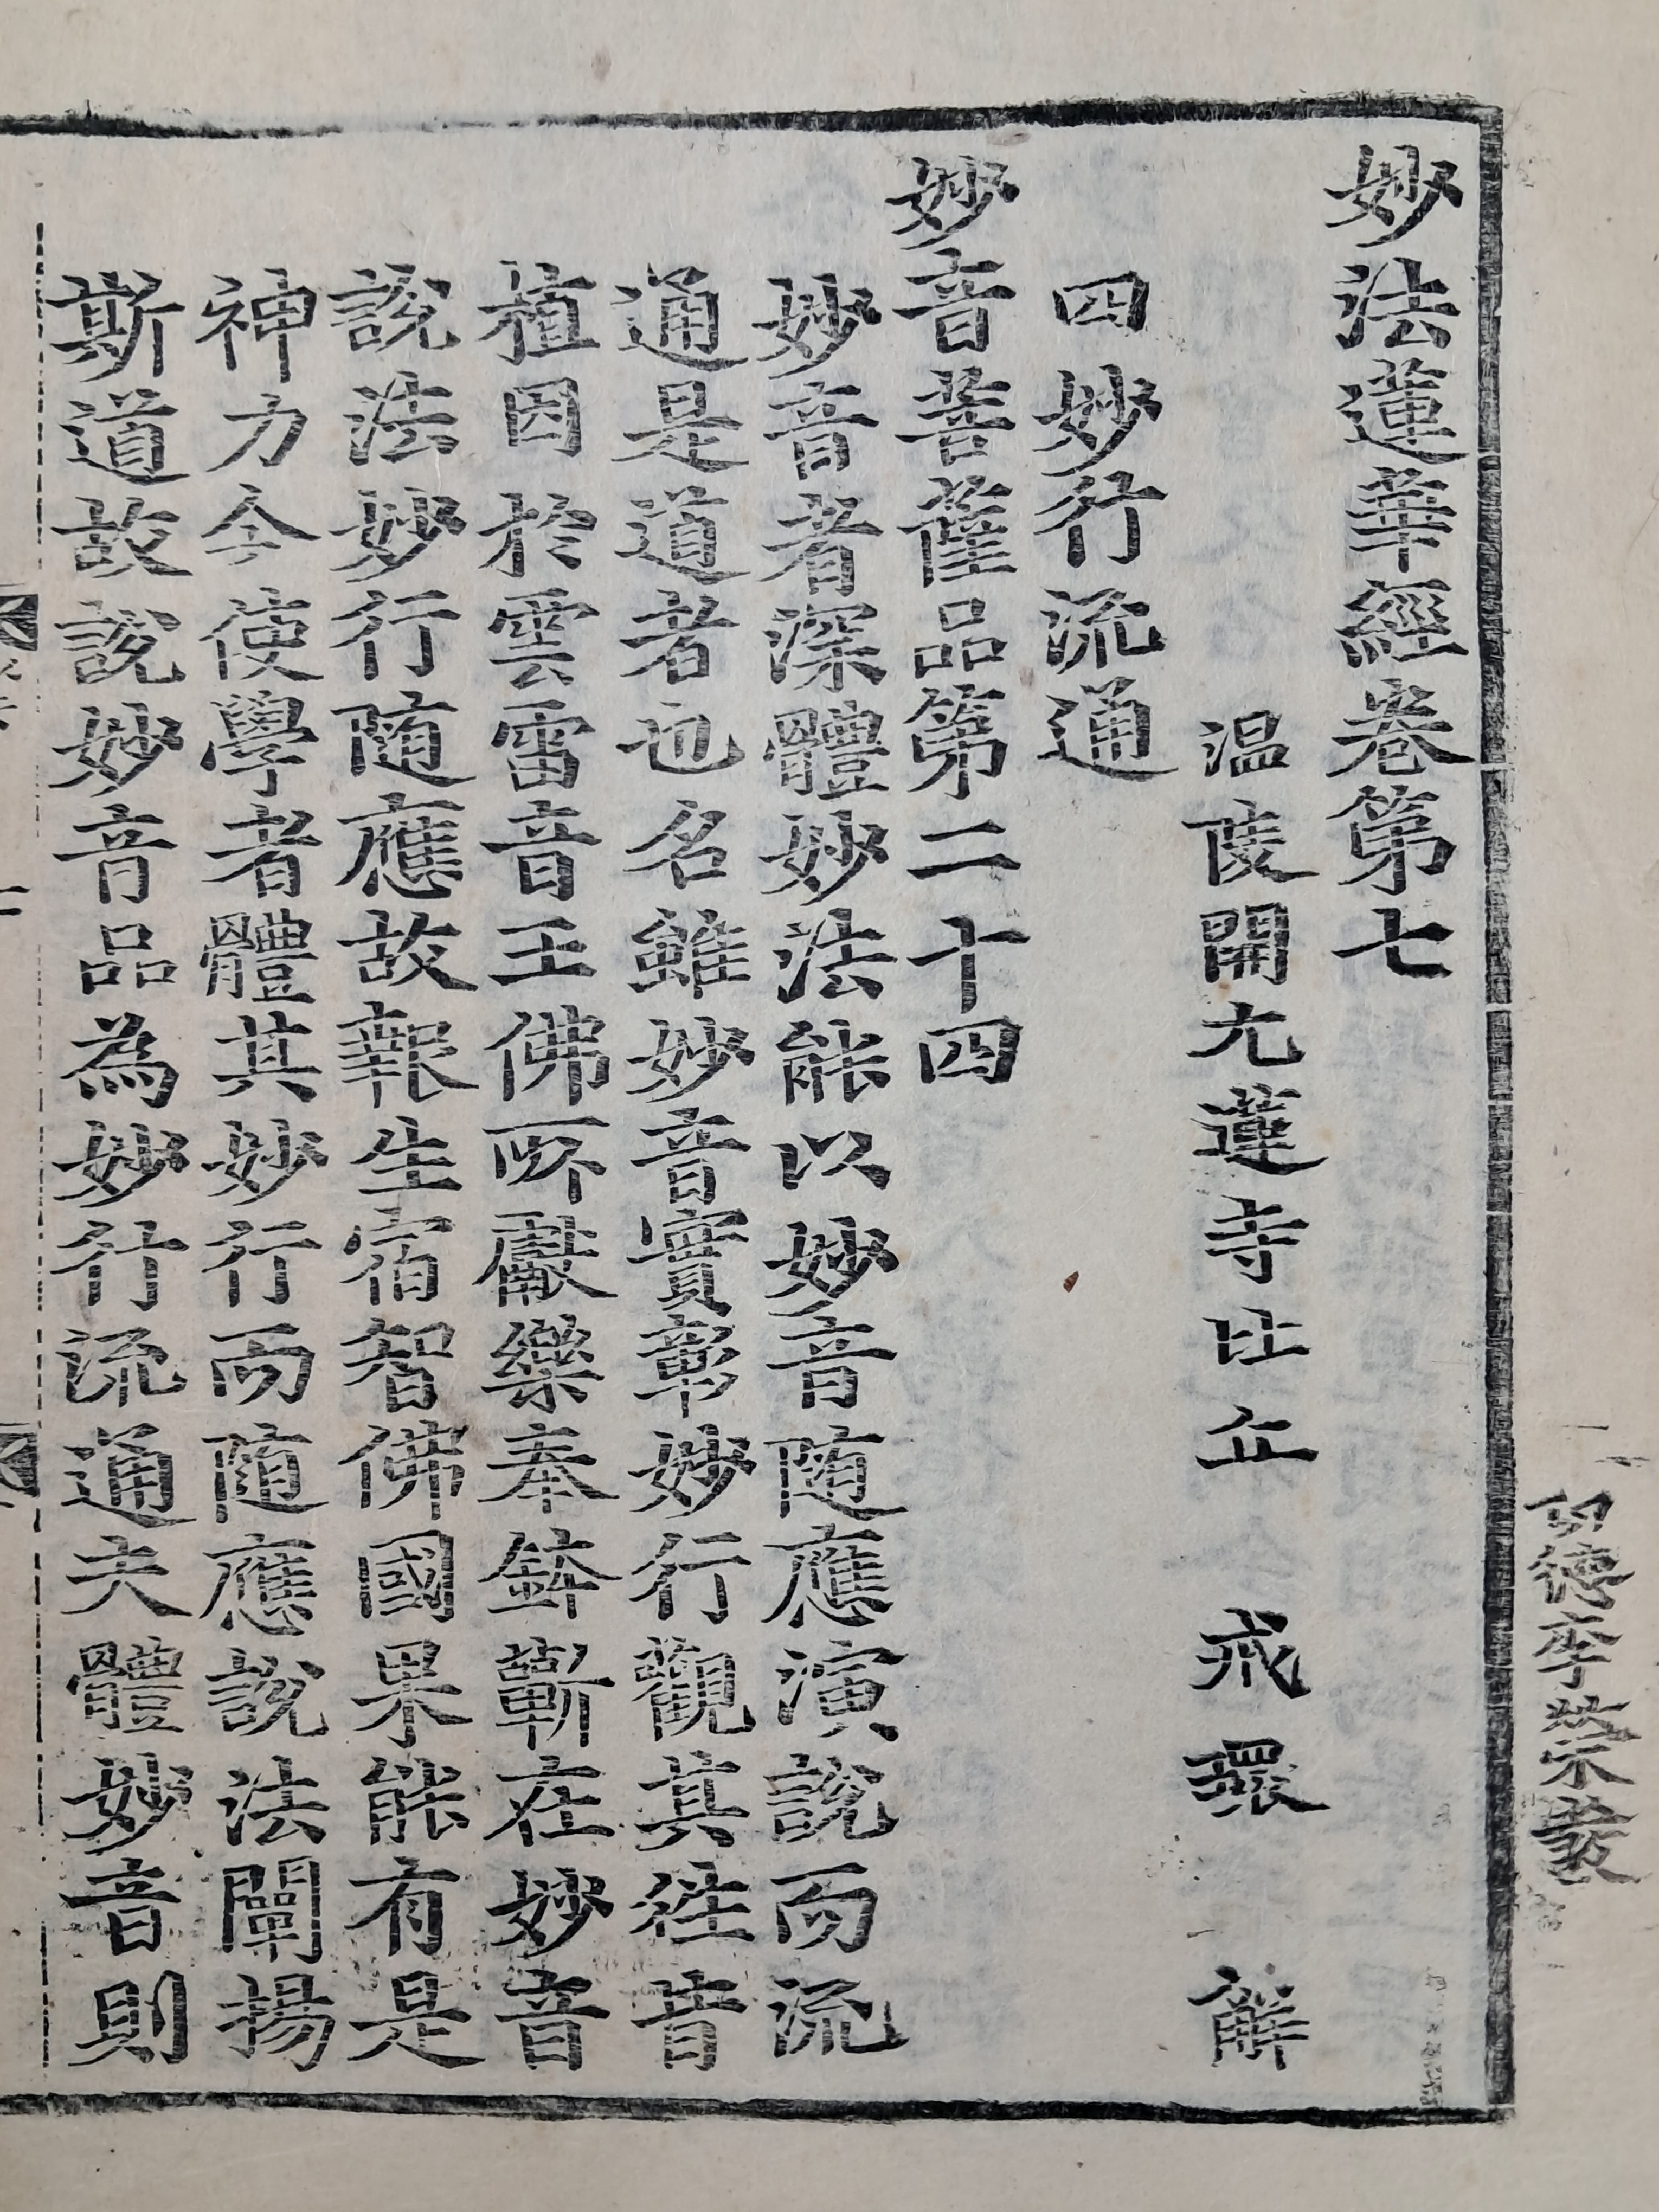 妙法蓮華經卷第七
温陵開元蓮寺比丘 戒環 解
四妙行流通
妙音菩薩品第二十四
妙音者深體妙法能以妙音随應演說而流
通是道者也名雖妙音實彰妙行觀其往昔
植因於雲雷音王佛所獻樂奉鉢蘄在妙音
說法妙行随應故報生宿智佛國果能有是
神力今使學者體其妙行而随應說法闡揚
斯道故說妙音品為妙行流通夫體妙音則